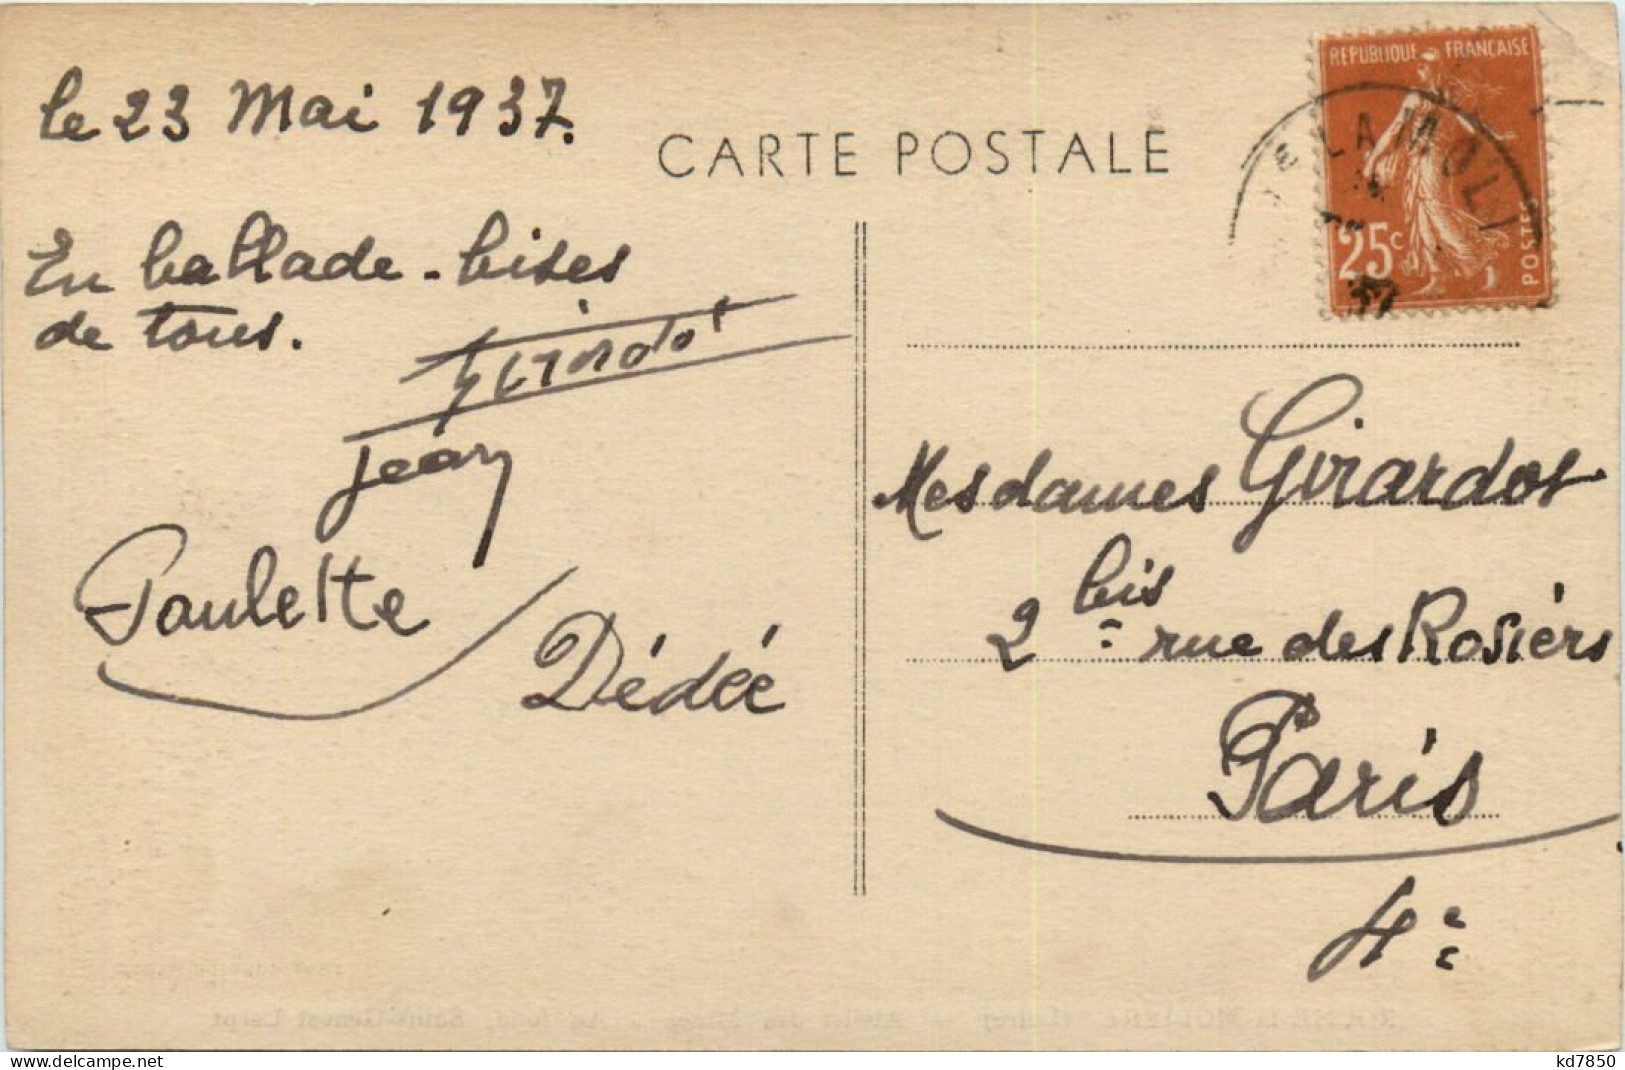 le 23 Mai 1937.
CARTE POSTALE
REPUBLIQUE FRANCAISE
LA MOLI
25c
POSTES
37
En ballade - bises
de tous.
Girardot
Jean
Paulette
Dédée
Mesdames Girardot
2 bis rue des Rosiérs
Paris
4e
kd7850